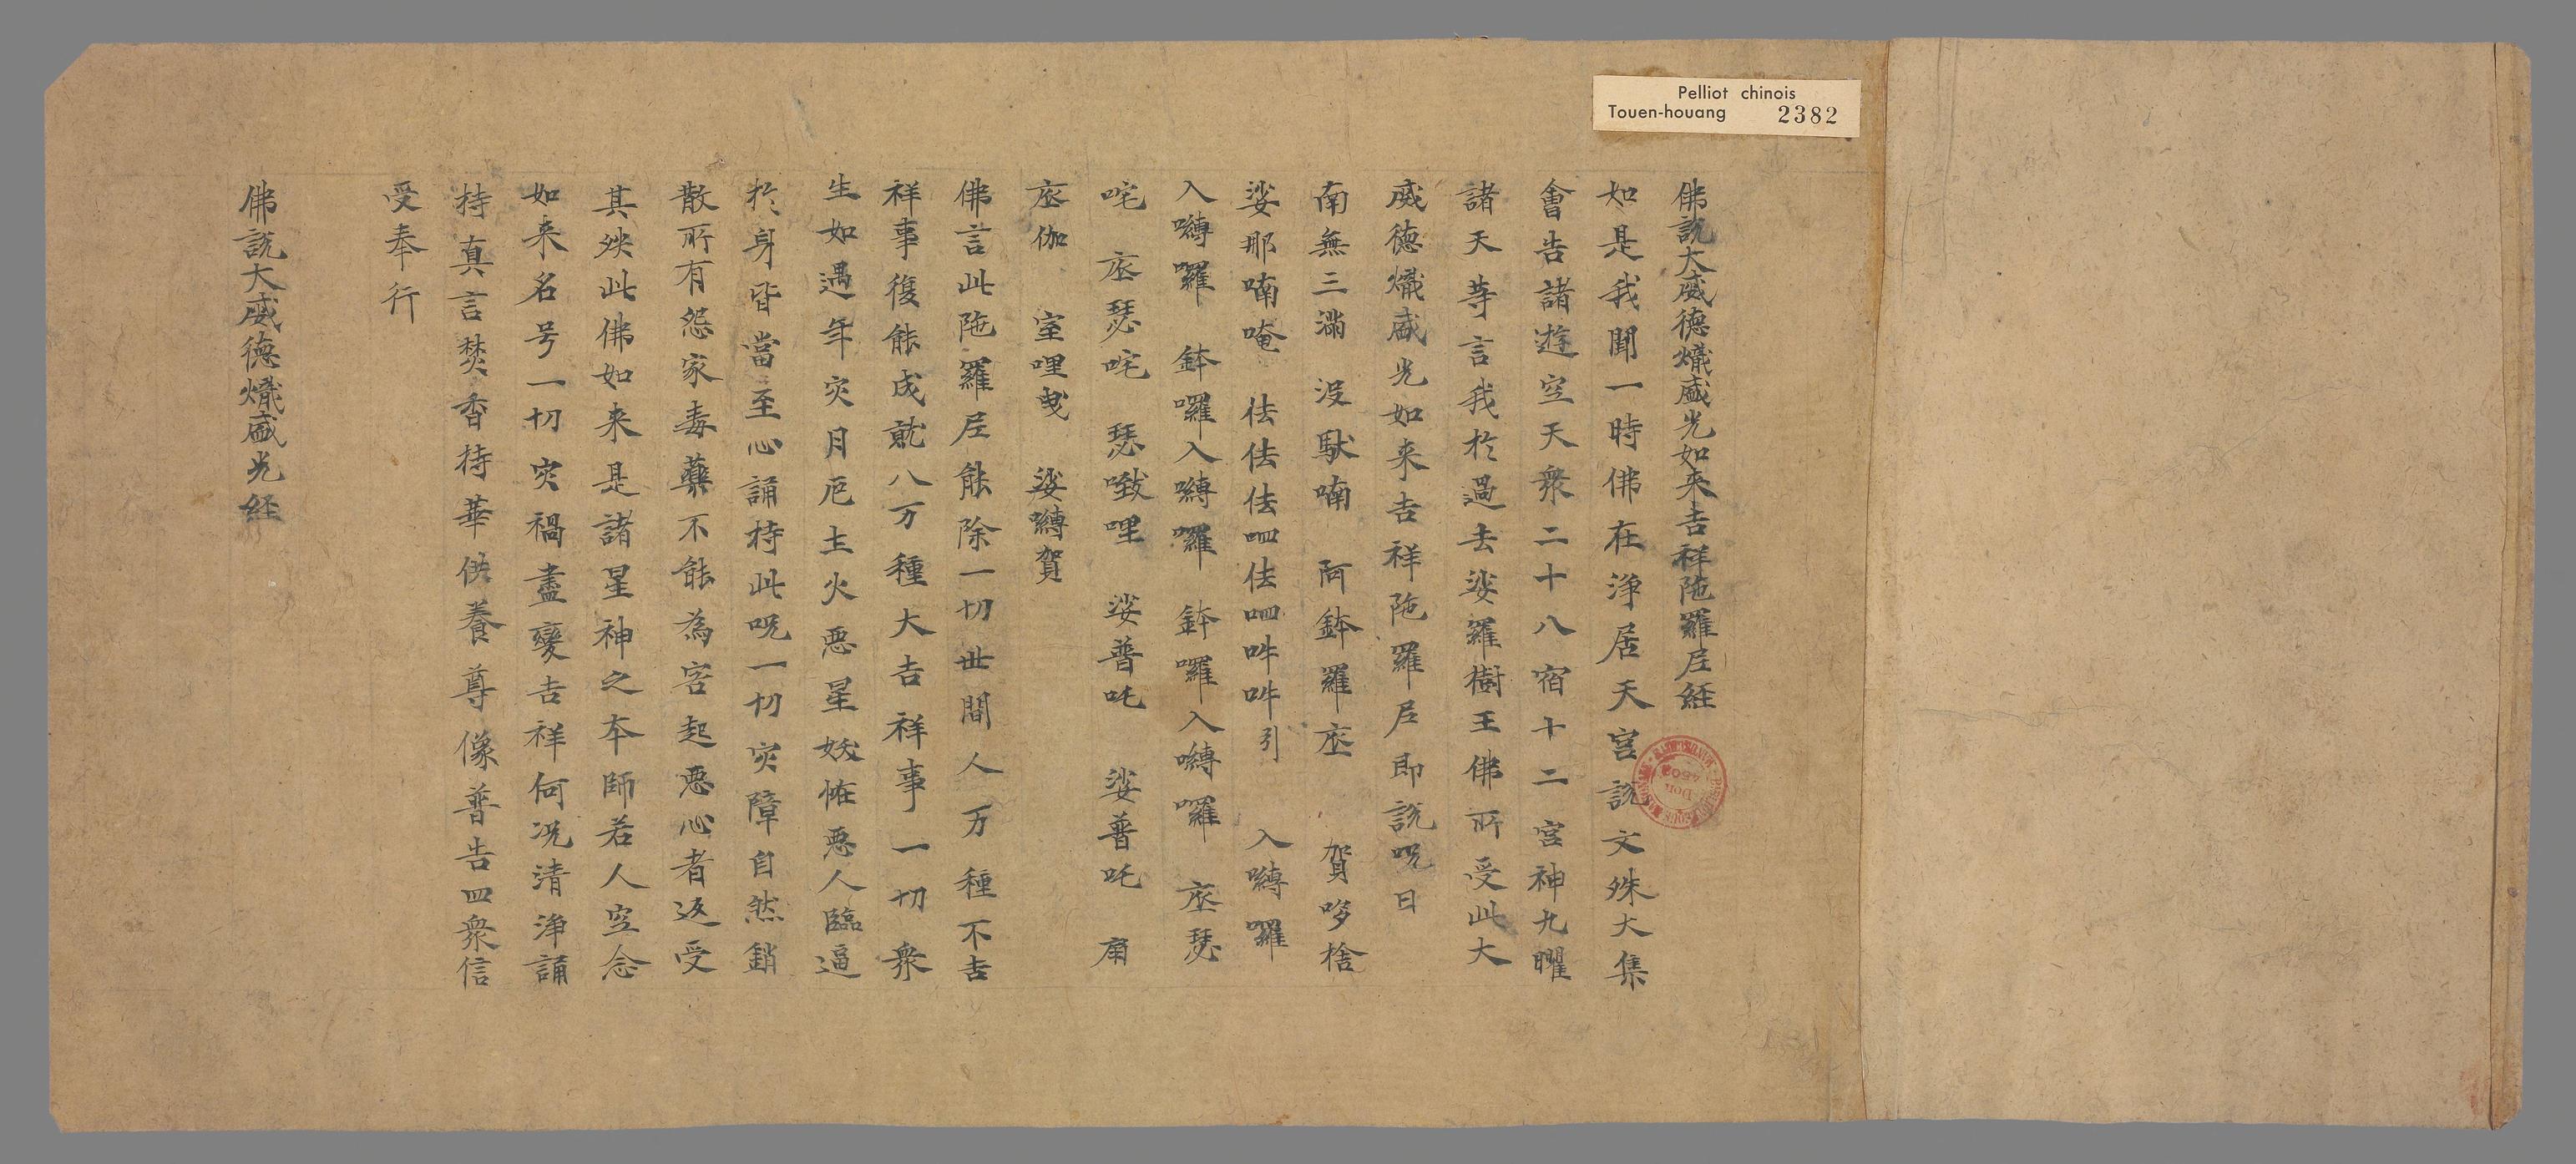 Pelliot chinois
Touen-houang 2382
佛説大威德熾盛光如来吉祥陁羅尼経
如是我聞一時佛在淨居天宮説文殊大集
會告諸遊空天衆二十八宿十二宮神九曜
諸天等言我於過去娑羅樹王佛所受此大
威德熾盛光如来吉祥陁羅尼即説呪曰
南無三滿 没馱喃 阿鉢羅底 賀哆捨
娑那喃唵 佉佉佉呬佉呬吽吽引 入嚩囉
入嚩囉 鉢囉入嚩囉 鉢囉入嚩囉 底瑟
咤 底瑟咤 瑟㗚哩 娑普吒 娑普吒 扇
底伽 室哩曳 娑嚩賀
佛言此陁羅尼能除一切世間人万種不吉
祥事復能成就八万種大吉祥事一切衆
生如遇年灾月厄土火惡星妖恠惡人臨逼
於身皆當至心誦持此呪一切灾障自然銷
散所有怨家毒藥不能為害起惡心者返受
其殃此佛如来是諸星神之本師若人空念
如来名号一切灾禍盡變吉祥何况清淨誦
持真言焚香持華供養尊像普告四衆信
受奉行
佛説大威德熾盛光経